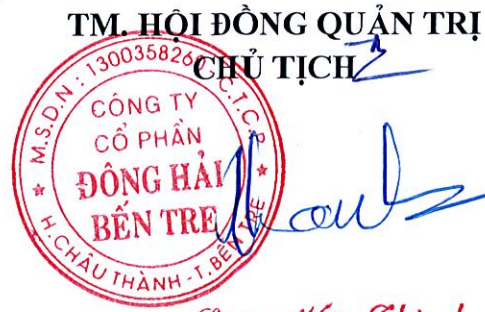 TM. HỘI ĐỒNG QUẢN TRỊ
CHỦ TỊCH
M.S.D.N: 1300358260 C.T.C.P
CÔNG TY
CỔ PHẦN
ĐÔNG HẢI
BẾN TRE
H.CHÂU THÀNH - T.BẾN TRE